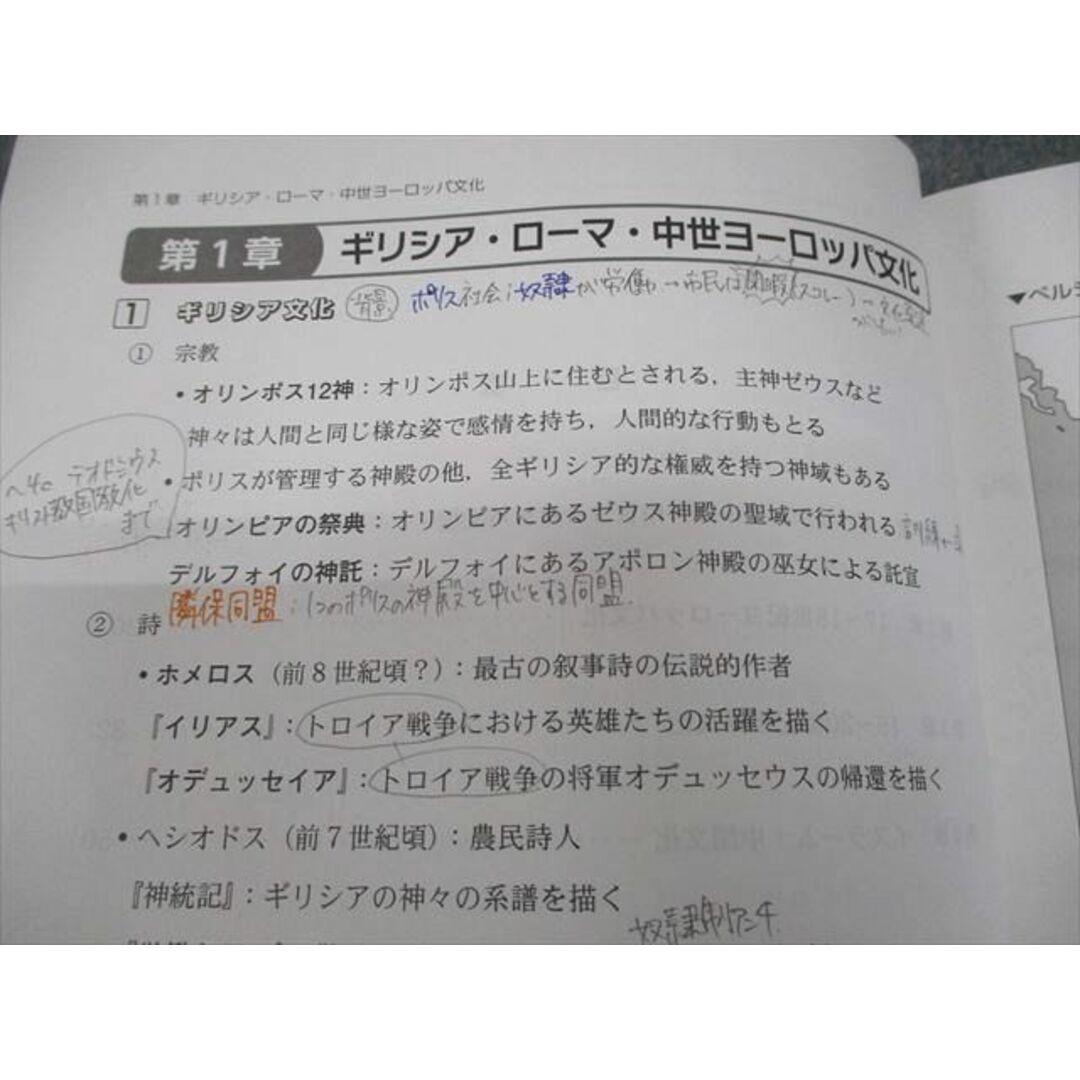 第1章 ギリシア・ローマ・中世ヨーロッパ文化
第1章 ギリシア・ローマ・中世ヨーロッパ文化
1 ギリシア文化 背景 ポリス社会；奴隷が労働→市民は閑暇(スコレー)→
① 宗教
・オリンポス12神：オリンポス山上に住むとされる，主神ゼウスなど
神々は人間と同じ様な姿で感情を持ち，人間的な行動もとる
・ポリスが管理する神殿の他，全ギリシア的な権威を持つ神域もある
オリンピアの祭典：オリンピアにあるゼウス神殿の聖域で行われる
デルフォイの神託：デルフォイにあるアポロン神殿の巫女による託宣
隣保同盟：1つのポリスの神殿を中心とする同盟
〜4c テオドシウス
キリスト教国教化
まで
② 詩
・ホメロス（前8世紀頃？）：最古の叙事詩の伝説的作者
『イリアス』：トロイア戦争における英雄たちの活躍を描く
『オデュッセイア』：トロイア戦争の将軍オデュッセウスの帰還を描く
・ヘシオドス（前7世紀頃）：農民詩人
『神統記』：ギリシアの神々の系譜を描く
奴隷制アンチ
▼ベルデ